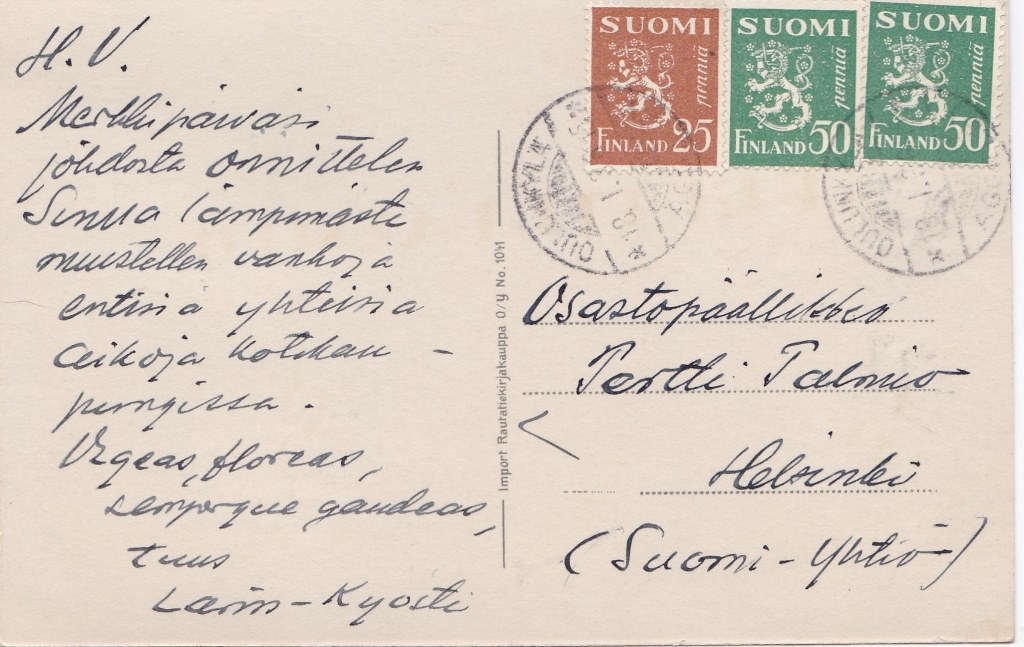 SUOMI
penniä
FINLAND 25
SUOMI
penniä
FINLAND 50
SUOMI
penniä
FINLAND 50
H. V.
Merkkipäiväsi
johdosta onnittelen
Sinua lämpimästi
muistellen vanhoja
entisiä yhteisiä
aikoja Kotkan –
pungissa.
Vigeas, floreas,
semperque gaudeas,
tuus
Larin-Kyösti
Import Rautatiekirjakauppa O/Y No. 1041
Osastopäällikkö
Pertti Palmio
Helsinki
(Suomi-Yhtiö)
OULUNKYLÄ
ÅGGELBY